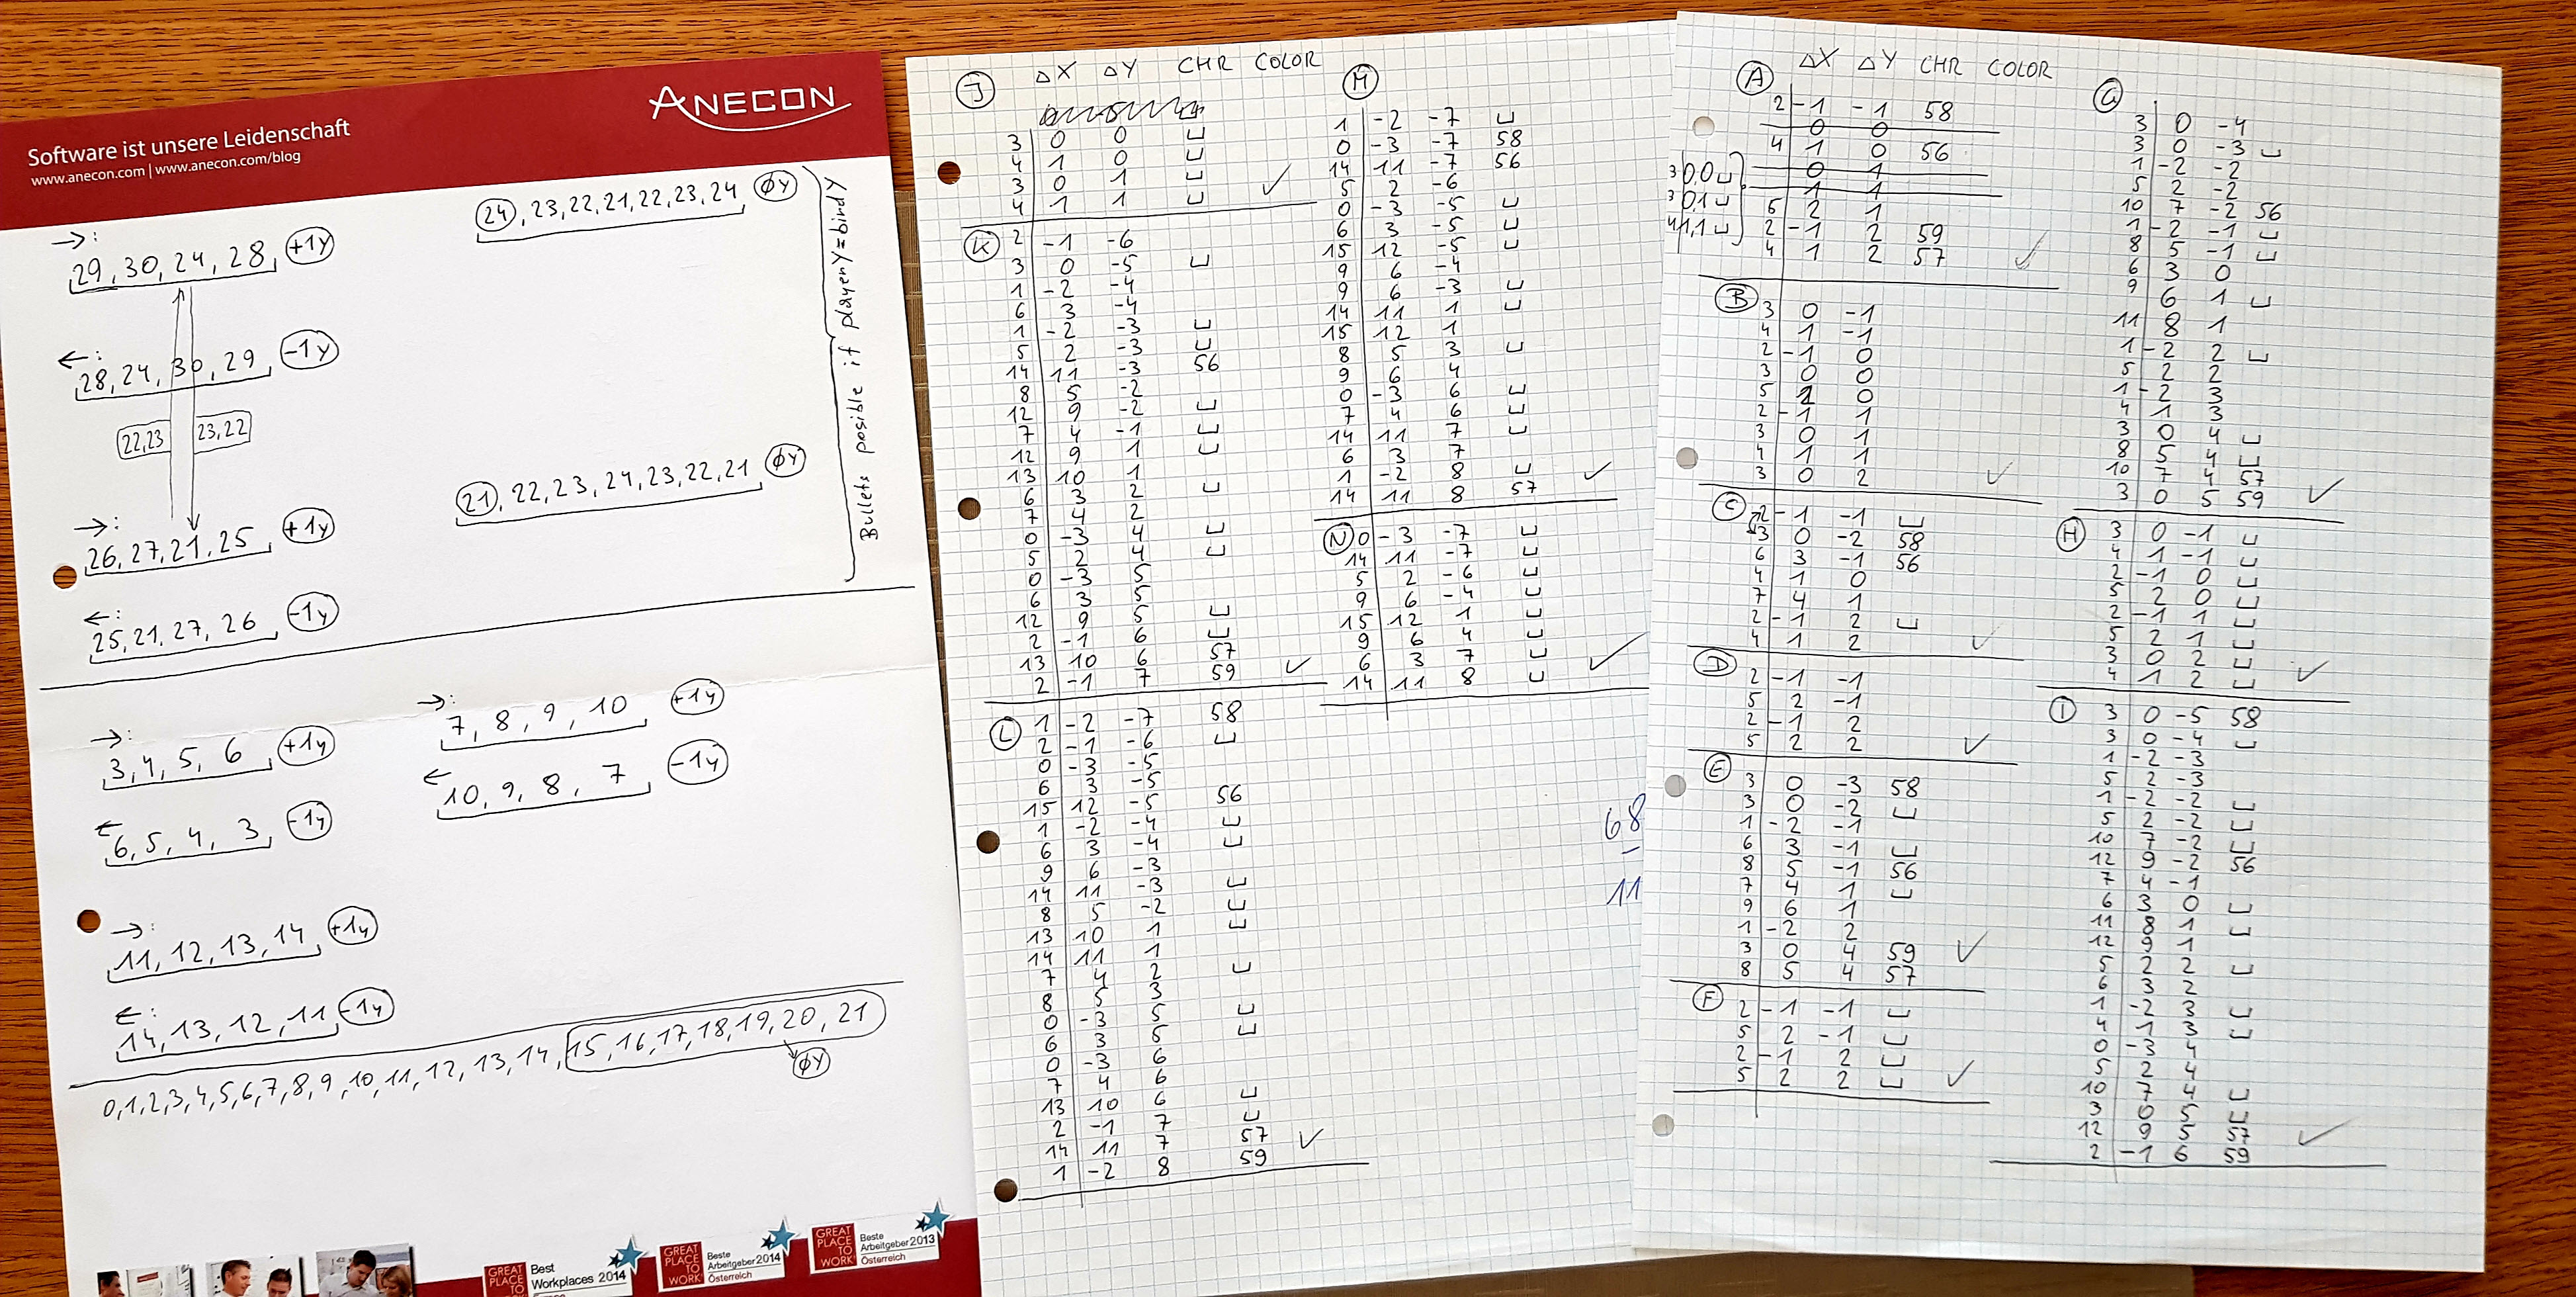 Software ist unsere Leidenschaft
www.anecon.com | www.anecon.com/blog
ANECON
→:
29, 30, 24, 28, +1Y
24, 23, 22, 21, 22, 23, 24 ØY
←:
28, 24, 30, 29 -1Y
22,23
23,22
→:
26, 27, 21, 25 +1Y
21, 22, 23, 24, 23, 22, 21 ØY
←:
25, 21, 27, 26 -1Y
Bullets posible if playerY=birdY
→:
3, 4, 5, 6 +1Y
→:
7, 8, 9, 10 +1Y
←
6, 5, 4, 3 -1Y
←
10, 9, 8, 7 -1Y
→:
11, 12, 13, 14 +1Y
←:
14, 13, 12, 11 -1Y
0,1,2,3,4,5,6,7,8,9,10,11,12,13,14, 15,16,17,18,19,20,21
ØY
GREAT PLACE TO WORK
Best
Workplaces 2014
GREAT PLACE TO WORK
Beste
Arbeitgeber 2014
Österreich
GREAT PLACE TO WORK
Beste
Arbeitgeber 2013
Österreich
J ΔX ΔY CHR COLOR
3 0 0 ␣
4 1 0 ␣
3 0 1 ␣
4 1 1 ␣ ✓
K
2 -1 -6
3 0 -5 ␣
1 -2 -4
6 3 -4
1 -2 -3 ␣
5 2 -3 ␣
14 11 -3 56
8 5 -2
12 9 -2 ␣
7 4 -1 ␣
12 9 1 ␣
13 10 1
6 3 2 ␣
7 4 2
0 -3 4 ␣
5 2 4 ␣
0 -3 5
6 3 5
12 9 5 ␣
2 -1 6 ␣
13 10 6 57
2 -1 7 59 ✓
L
1 -2 -7 58
2 -1 -6 ␣
0 -3 -5
6 3 -5
15 12 -5 56
1 -2 -4 ␣
6 3 -4 ␣
9 6 -3
14 11 -3 ␣
8 5 -2 ␣
13 10 1 ␣
14 11 1
7 4 2 ␣
8 5 3
0 -3 5 ␣
6 3 5 ␣
0 -3 6
7 4 6
13 10 6 ␣
2 -1 7 ␣
14 11 7 57 ✓
1 -2 8 59
M
1 -2 -7 ␣
0 -3 -7 58
14 11 -7 56
5 2 -6
0 -3 -5 ␣
6 3 -5 ␣
15 12 -5 ␣
9 6 -4
9 6 -3 ␣
14 11 1 ␣
15 12 1
8 5 3 ␣
9 6 4
0 -3 6 ␣
7 4 6 ␣
14 11 7 ␣
6 3 7
1 -2 8 ␣ ✓
14 11 8 57
N
0 -3 -7 ␣
14 11 -7 ␣
5 2 -6 ␣
9 6 -4 ␣
15 12 1 ␣
9 6 4 ␣
6 3 7 ␣
14 11 8 ␣ ✓
68
-
11
A ΔX ΔY CHR COLOR
2 -1 -1 58
0 0
4 1 0 56
0 1
1 1
5 2 1
2 -1 2 59
4 1 2 57 ✓
3 0,0 ␣
3 0,1 ␣
4 1,1 ␣
B
3 0 -1
4 1 -1
2 -1 0
3 0 0
5 2 0
2 -1 1
3 0 1
4 1 1
3 0 2 ✓
C
2 -1 -1 ␣
3 0 -2 58
6 3 -1 56
4 1 0
7 4 1
2 -1 2 ␣
4 1 2 ✓
D
2 -1 -1
5 2 -1
2 -1 2
5 2 2 ✓
E
3 0 -3 58
3 0 -2 ␣
1 -2 -1
6 3 -1 ␣
8 5 -1 56
7 4 1 ␣
9 6 1
1 -2 2
3 0 4 59 ✓
8 5 4 57
F
2 -1 -1 ␣
5 2 -1 ␣
2 -1 2 ␣
5 2 2 ␣ ✓
G
3 0 -4
3 0 -3 ␣
1 -2 -2
5 2 -2
10 7 -2 56
1 -2 -1 ␣
8 5 -1 ␣
6 3 0
9 6 1 ␣
11 8 1
1 -2 2 ␣
5 2 2
1 -2 3
4 1 3
3 0 4 ␣
8 5 4 ␣
10 7 4 57
3 0 5 59 ✓
H
3 0 -1 ␣
4 1 -1 ␣
2 -1 0 ␣
5 2 0 ␣
2 -1 1 ␣
5 2 1 ␣
3 0 2 ␣
4 1 2 ␣ ✓
I
3 0 -5 58
3 0 -4 ␣
1 -2 -3
5 2 -3
1 -2 -2 ␣
5 2 -2 ␣
10 7 -2 ␣
12 9 -2 56
7 4 -1
6 3 0 ␣
11 8 1 ␣
12 9 1
5 2 2 ␣
6 3 2
1 -2 3 ␣
4 1 3 ␣
0 -3 4
5 2 4
10 7 4 ␣
3 0 5 ␣
12 9 5 57 ✓
2 -1 6 59